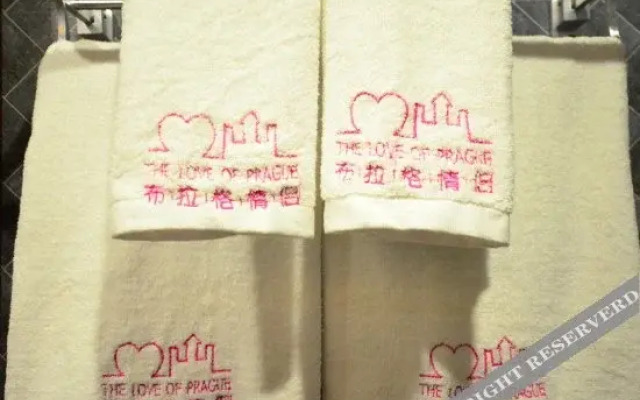 THE LOVE OF PRAGUE
布拉格情侶
THE LOVE OF PRAGUE
布拉格情侶
THE LOVE OF PRAGUE
THE LOVE OF PRAG
IGHT RESERVERD